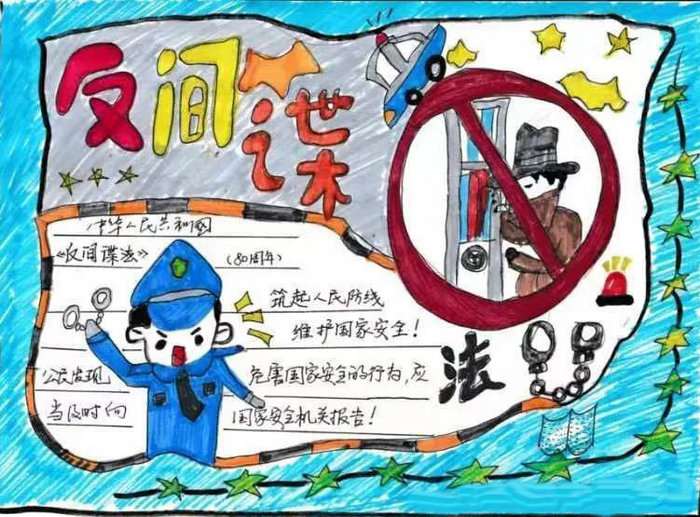 反间谍
法
中华人民共和国
《反间谍法》（80周年）
筑起人民防线
维护国家安全！
公民发现 危害国家安全的行为，应
当及时向 国家安全机关报告！